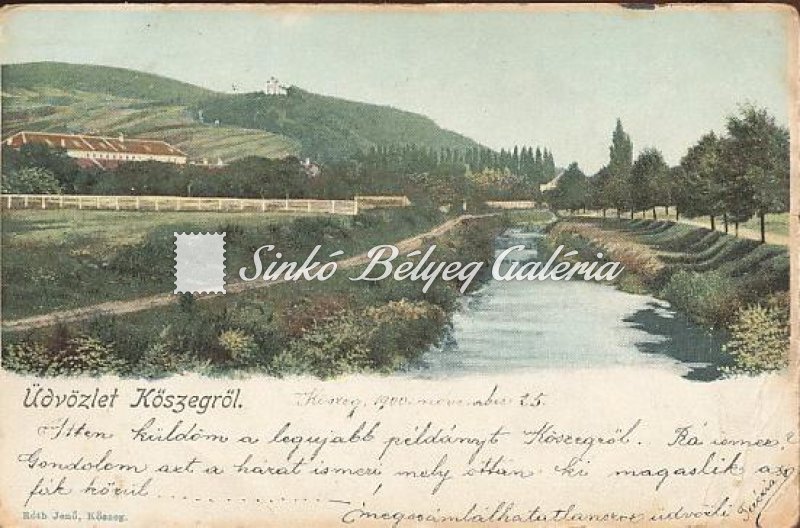 Sinkó Bélyeg Galéria
Üdvözlet Kőszegről.
Kőszeg, 1900. november 25.
Itten küldöm a legujabb példányt Kőszegről. Rá ismer?
Gondolom azt a házat ismeri mely ottan ki magaslik a
fák közül
megszámlálhatatlanszor üdvözli
Róth Jenő, Kőszeg.